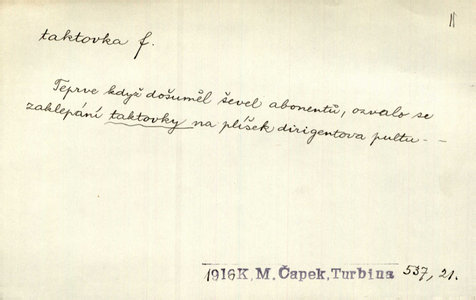 II
taktovka f.
Teprve když došuměl ševel abonentů, ozvalo se
zaklepání taktovky na plíšek dirigentova pultu - -
1916 K. M. Čapek, Turbina 537, 21.